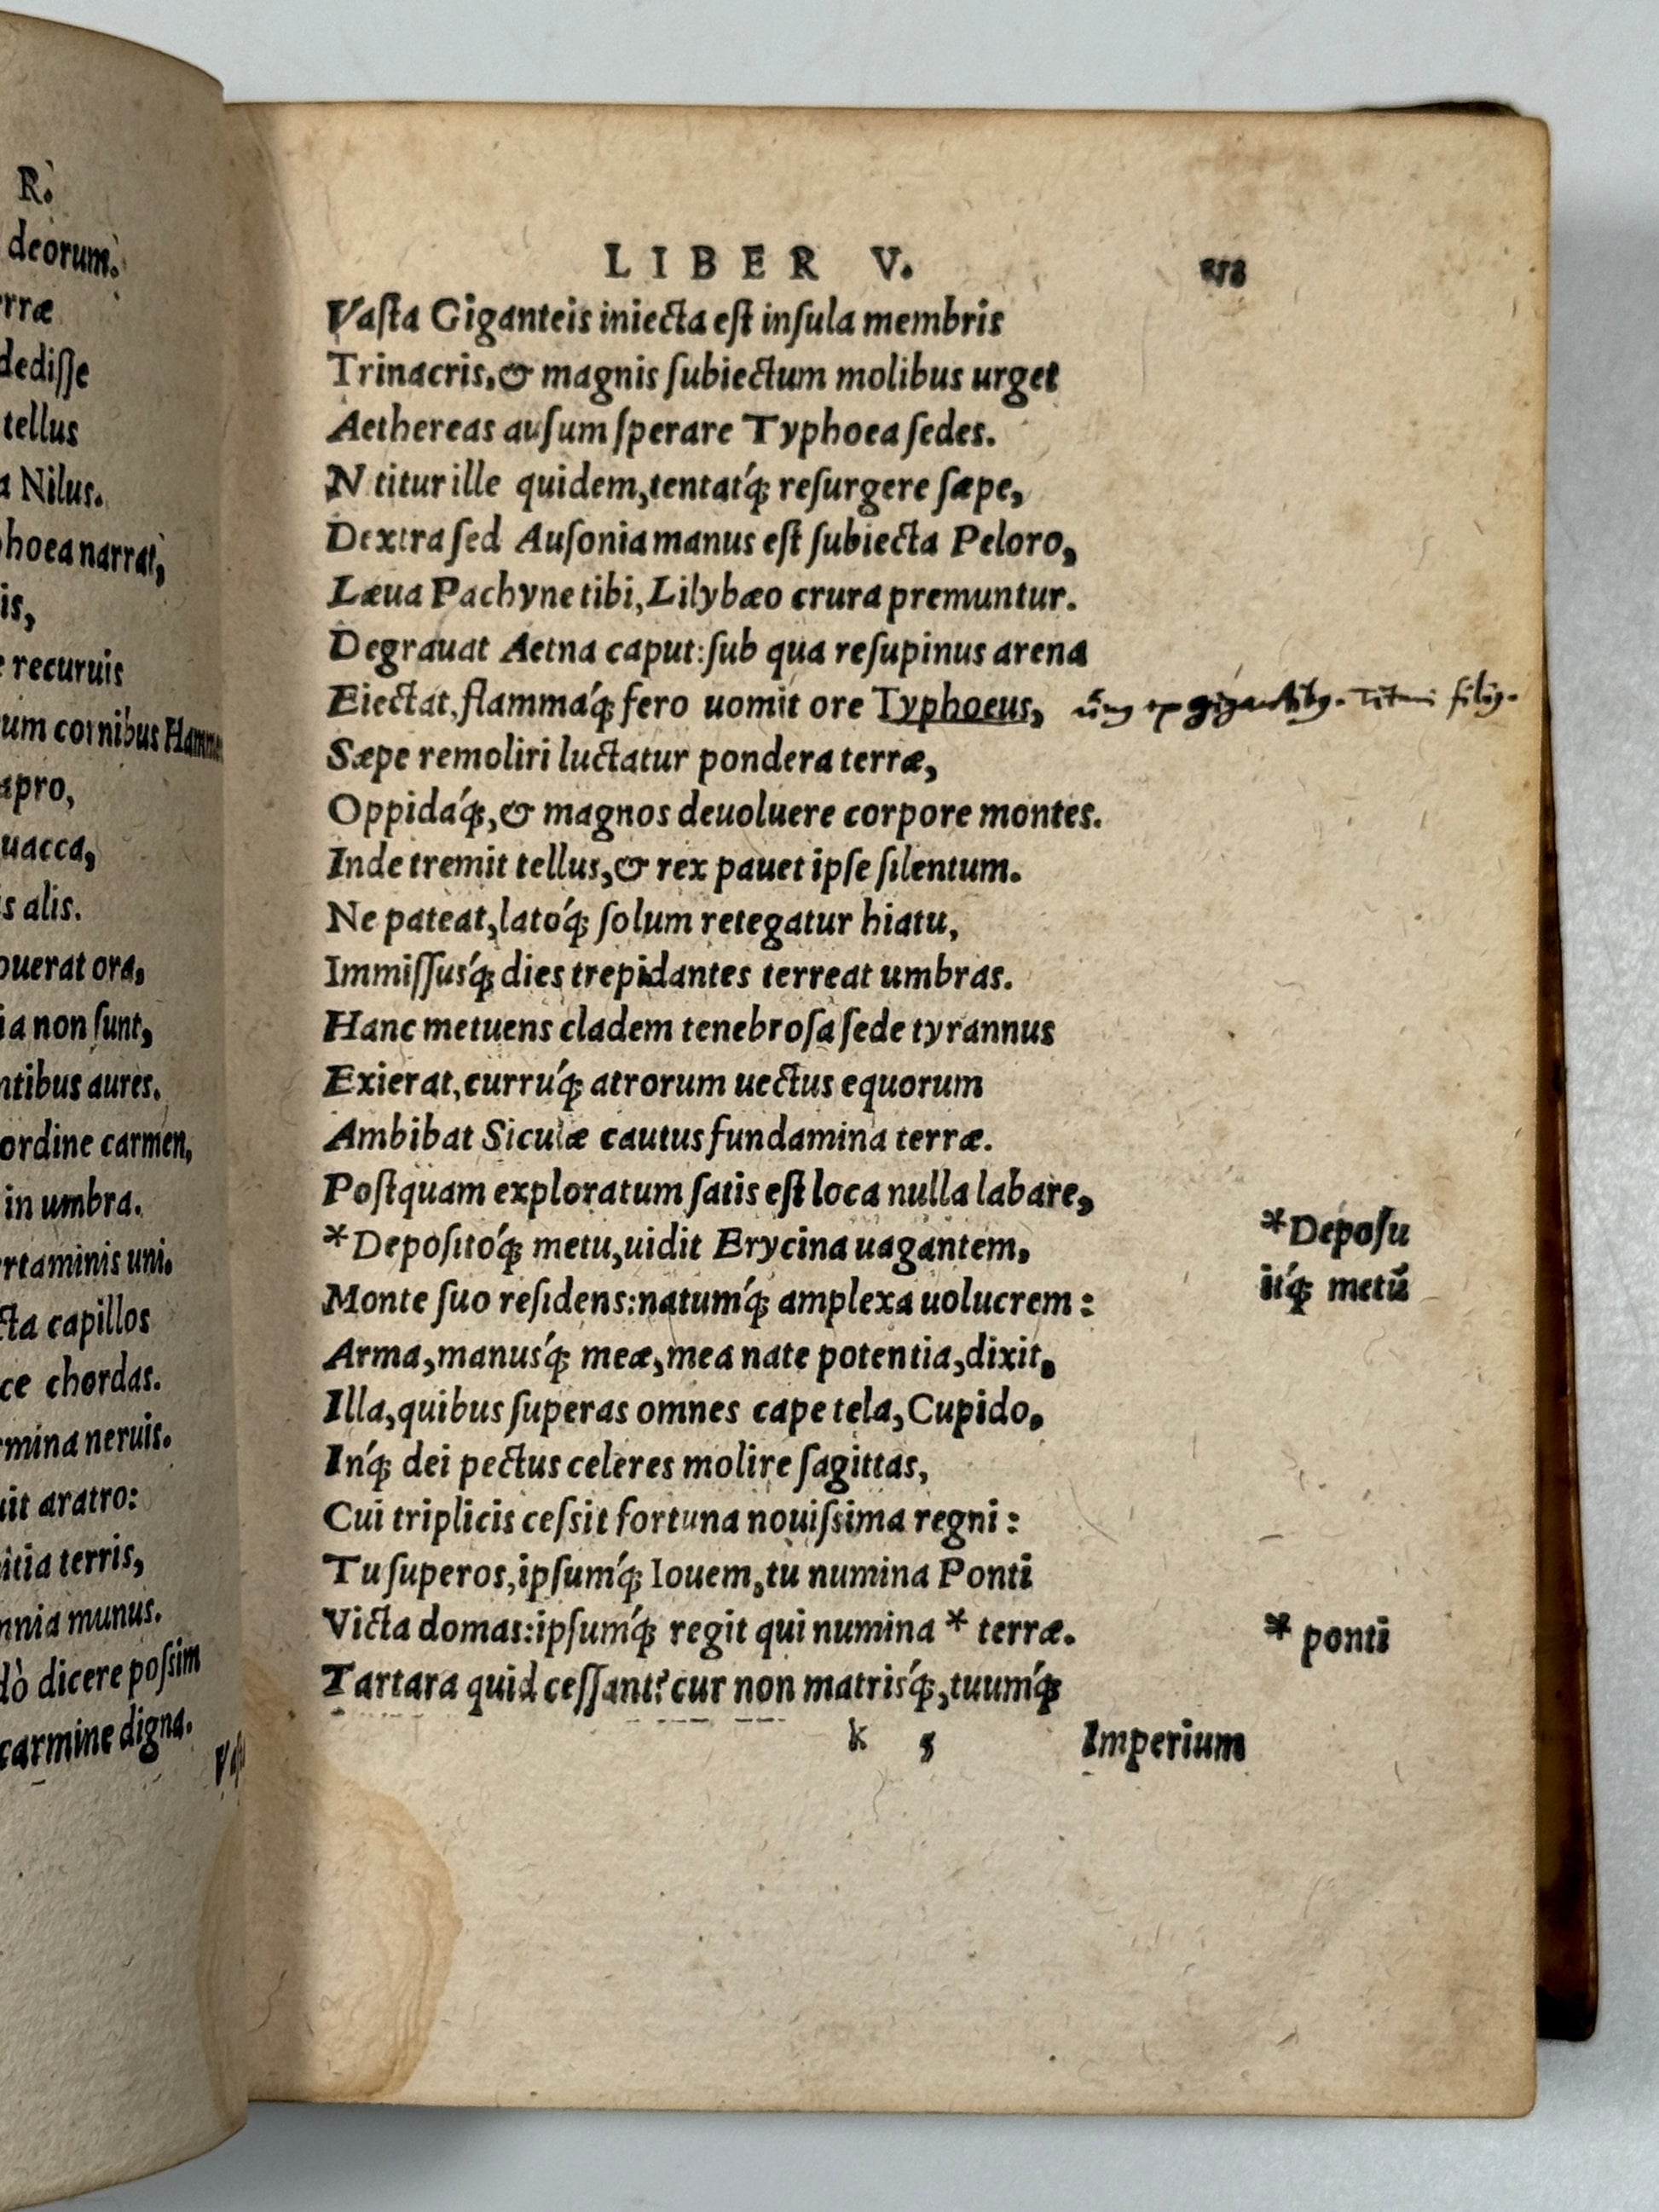 R.
deorum.
rræ
dediſſe
tellus
a Nilus.
hoea narrat,
is,
e recuruis
um cornibus Hamm
apro,
uacca,
s alis.
ouerat ora,
ia non ſunt,
ntibus aures.
ordine carmen,
in umbra.
ertaminis uni.
cta capillos
ce chordas.
rmina neruis.
uit aratro:
itia terris,
nnia munus.
dò dicere poſsim
carmine digna.
Vaſt
LIBER V.
Vaſta Giganteis iniecta eſt inſula membris
Trinacris,& magnis ſubiectum molibus urget
Aethereas auſum ſperare Typhoea ſedes.
N titur ille quidem,tentatq́; reſurgere ſæpe,
Dextra ſed Auſonia manus eſt ſubiecta Peloro,
Læua Pachyne tibi,Lilybæo crura premuntur.
Degrauat Aetna caput:ſub qua reſupinus arena
Eiectat,flammaq́; fero uomit ore Typhoeus, ūus ex gigantibus. Titani filius.
Sæpe remoliri luctatur pondera terræ,
Oppidaq́;,& magnos deuoluere corpore montes.
Inde tremit tellus,& rex pauet ipſe ſilentum.
Ne pateat,latoq́; ſolum retegatur hiatu,
Immiſſusq́; dies trepidantes terreat umbras.
Hanc metuens cladem tenebroſa ſede tyrannus
Exierat,curruq́; atrorum uectus equorum
Ambibat Siculæ cautus fundamina terræ.
Poſtquam exploratum ſatis eſt loca nulla labare,
*Depoſitoq́; metu,uidit Erycina uagantem, *Depoſu
Monte ſuo reſidens:natumq́; amplexa uolucrem: itq́; metū
Arma,manusq́; meæ,mea nate potentia,dixit,
Illa,quibus ſuperas omnes cape tela,Cupido,
Inq́; dei pectus celeres molire ſagittas,
Cui triplicis ceſsit fortuna nouiſsima regni:
Tu ſuperos,ipſumq́; Iouem,tu numina Ponti
Victa domas:ipſumq́; regit qui numina * terræ. * ponti
Tartara quid ceſſant?cur non matrisq́;,tuumq́;
k 5 Imperium